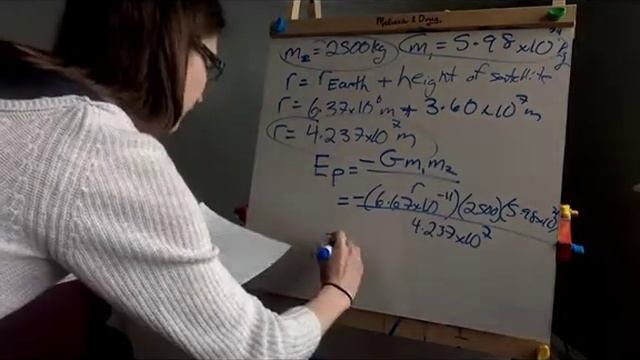 m₂ = 2500kg m₁ = 5.98x10²⁴ kg
r = rEarth + height of satellite
r = 6.37x10⁶ m + 3.60x10⁷ m
r = 4.237x10⁷ m
Ep = -Gm₁m₂
r
= -(6.67x10⁻¹¹)(2500)(5.98x10²⁴)
4.237x10²